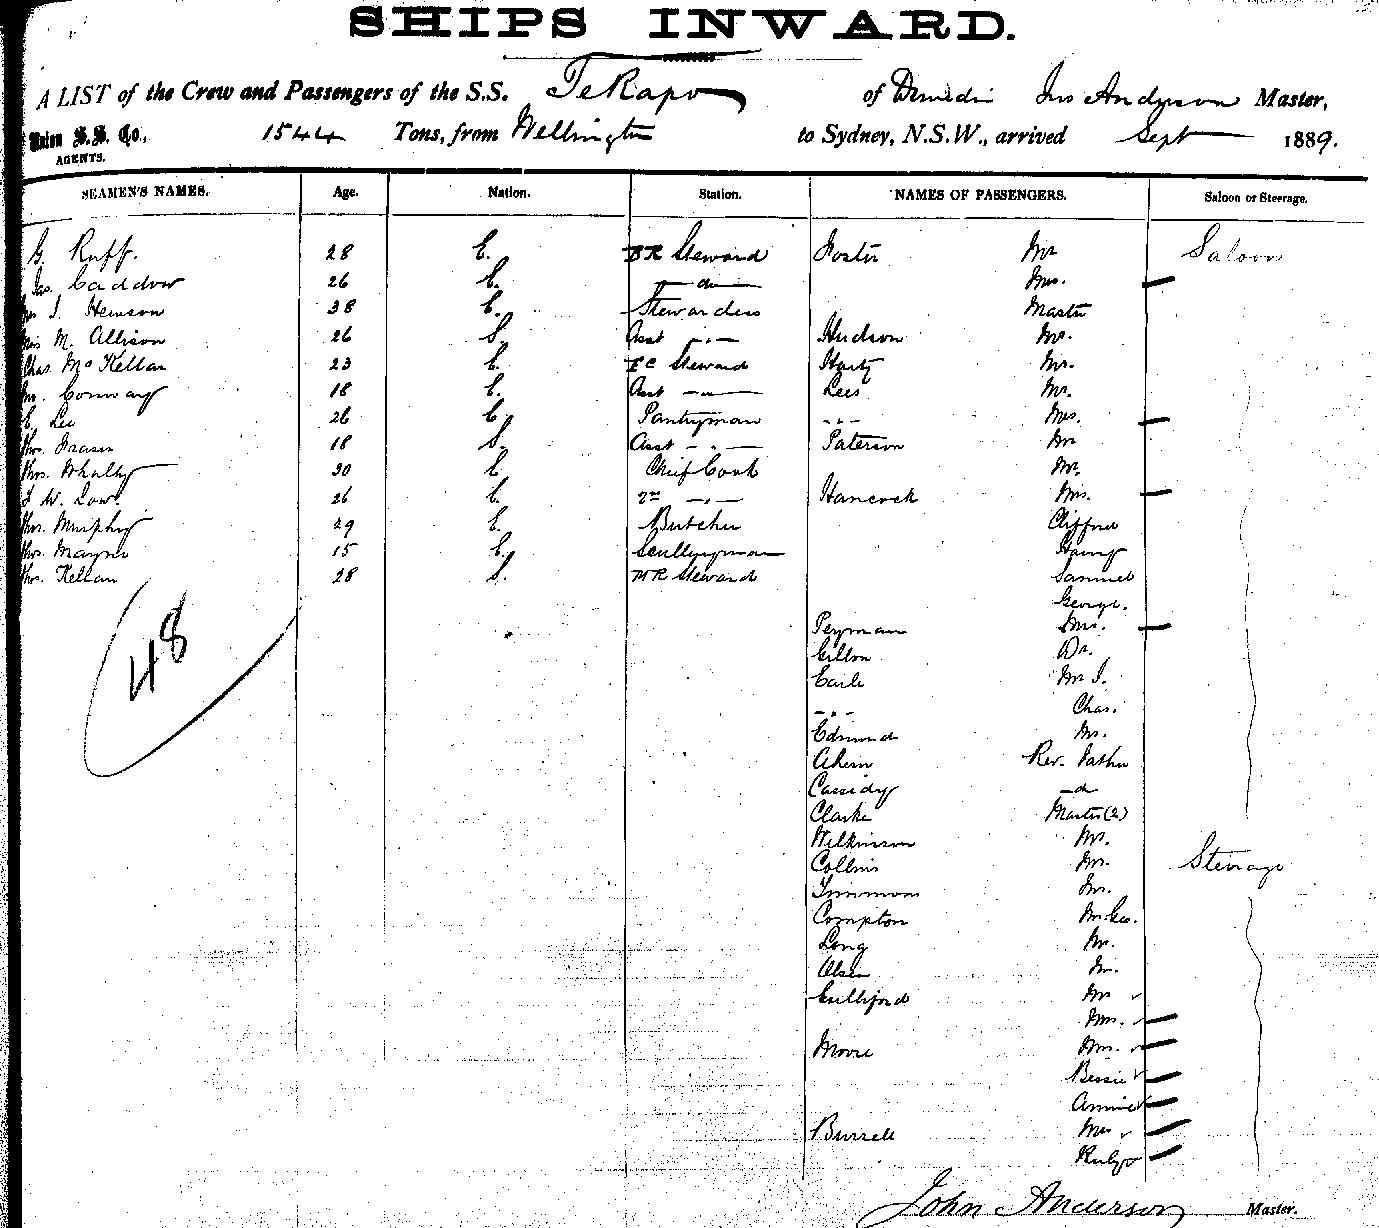 SHIPS INWARD.
A LIST of the Crew and Passengers of the S.S. TeKapo of Dunedin Jno Anderson Master,
Union S.S. Co., AGENTS. 1544 Tons, from Wellington to Sydney, N.S.W., arrived Sept 1889.
SEAMEN'S NAMES. Age. Nation. Station. NAMES OF PASSENGERS. Saloon or Steerage.
G. Ruff. 28 E. Steward Foster Mr Saloon
Jas. Caddow 26 E. - do - Mrs. —
J. Hewson 38 E. Stewardess Master
M. Allison 26 S. Asst - " - Hudson Mr.
Chas. McKellan 23 E. FC Steward Mr.
Conway 18 E. Asst - " - Lees Mr.
E. Lee 26 E. Pantryman - " - Mrs. —
Thos. Frasier 18 S. Asst - " - Paterson Mr
Thos. Whally 30 E. Chief Cook Mr.
J W. Low. 26 E. 2nd - " - Hancock Mrs. —
Thos. Murphy 29 E. Butcher Clifford
Thos. Mayne 15 E. Scullyman Harry
Thos. Kellan 28 S. MR Steward Samuel
George.
48
Peyman Mrs. —
Gillon Dr.
Earle Mr J.
- " - Chas.
Edmund Mr.
Ahern Rev. Father
Cassidy - do
Clarke Master (2)
Wilkinson Mr.
Collins Mr. Steerage
Timmons Mr.
Compton Mr Geo.
Long Mr.
Olsen Mr.
Gulliford Mr ✓
Mrs. ✓ —
Moore Mrs. ✓ —
Bessie ✓ —
Annie ✓ —
Burrell Mrs ✓ —
Ruby ✓ —
John Anderson Master.